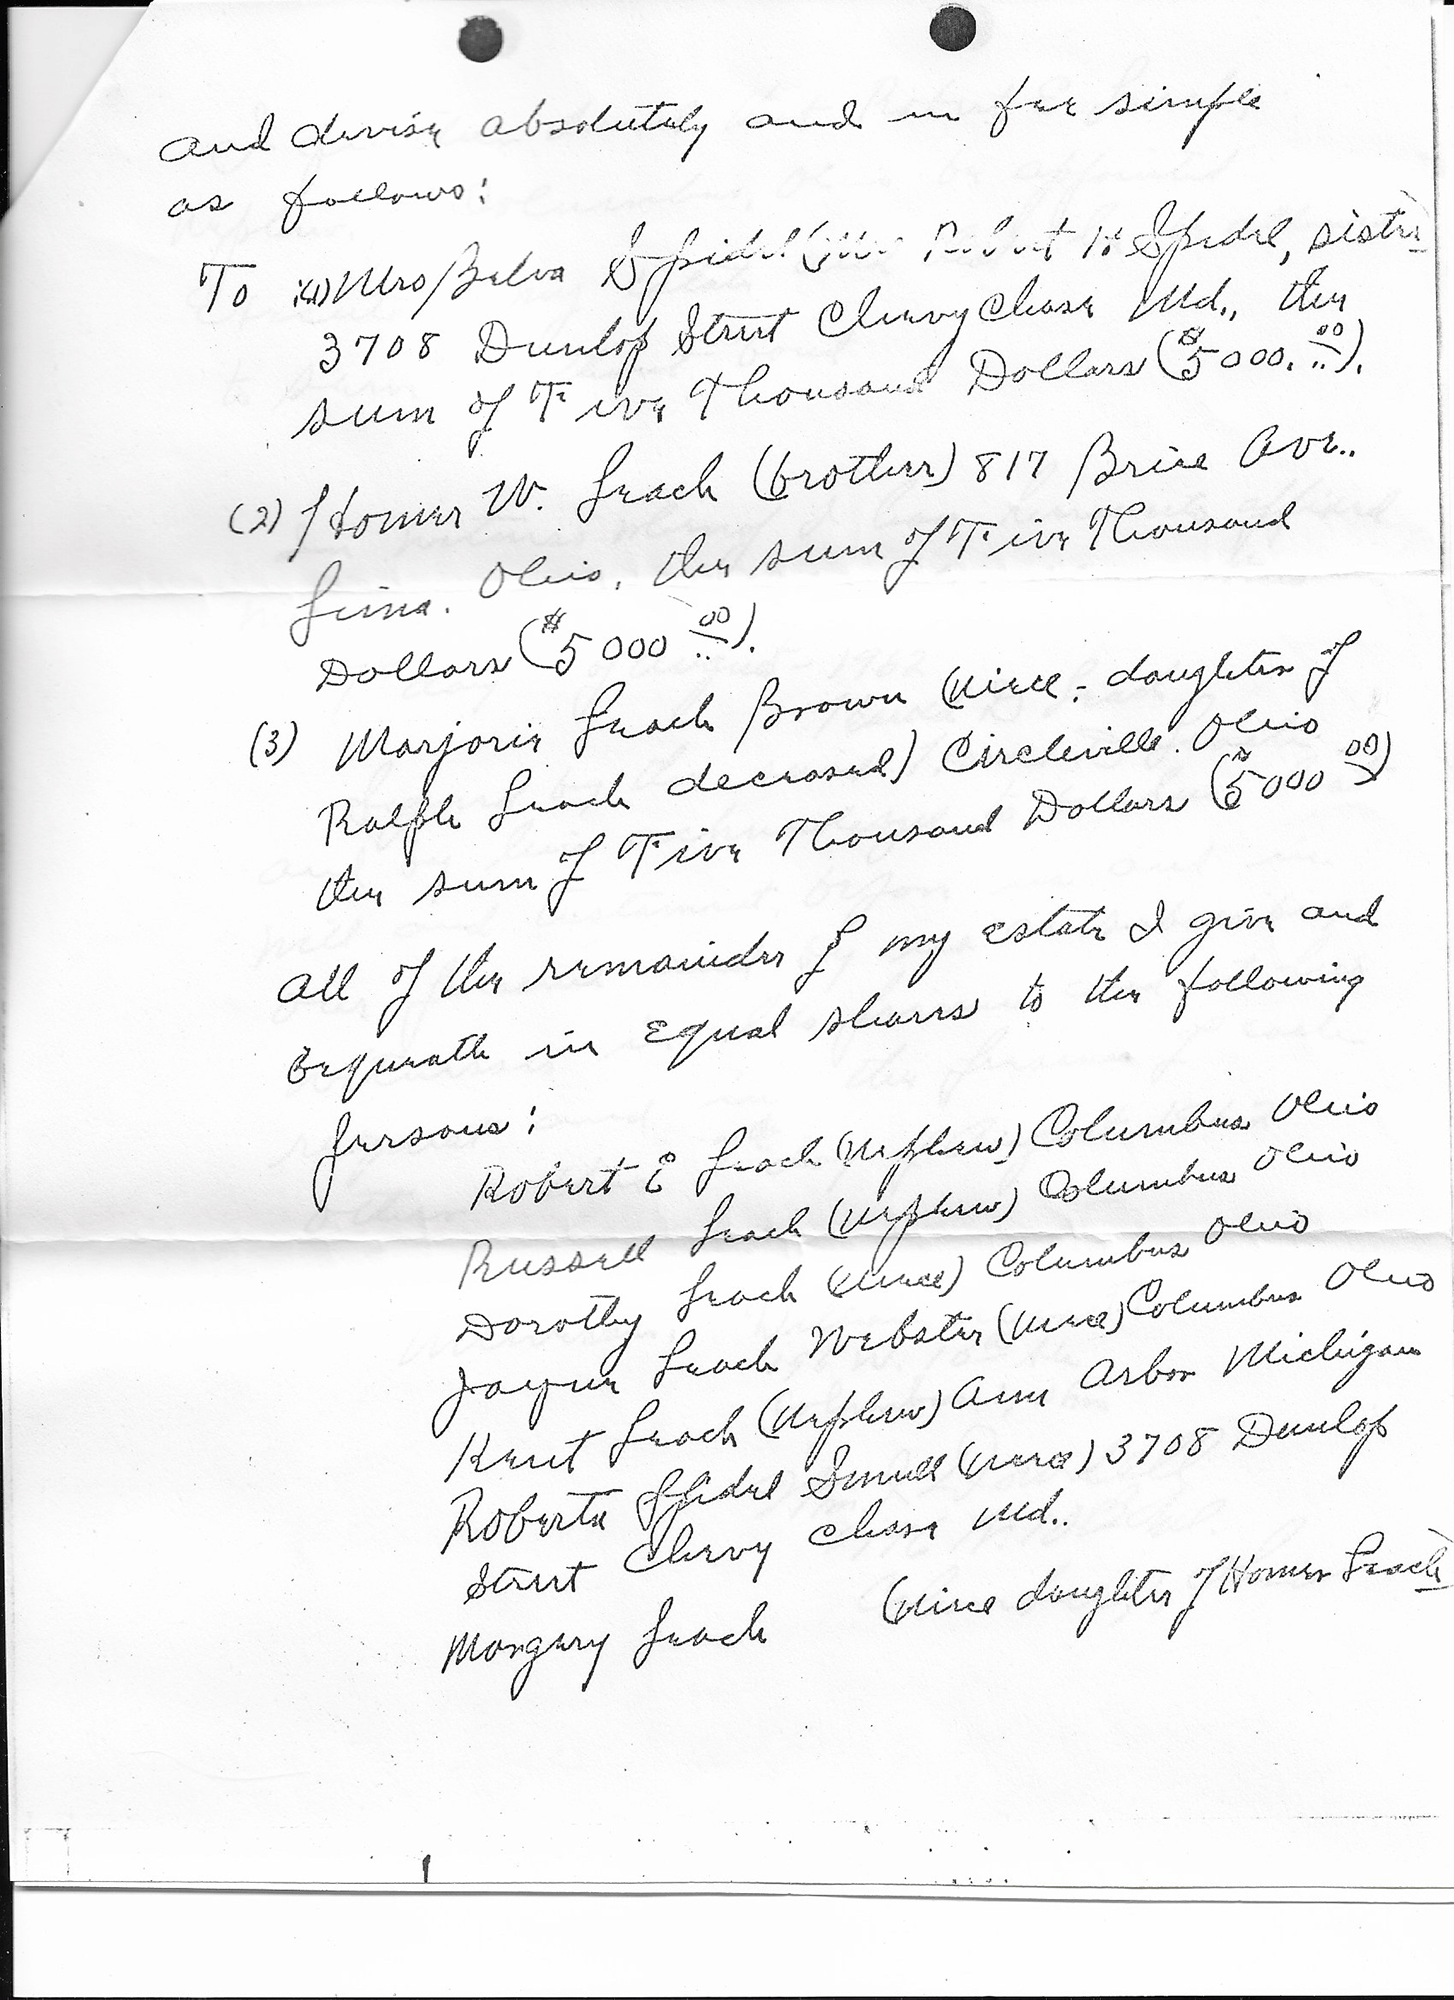 and devise absolutely and in fee simple
as follows:
To (1) Mrs Belva Spidel (Mrs Robert H Spidel, sister
3708 Dunlop Street Chevy Chase Md., the
sum of Five Thousand Dollars ($5000.00).
(2) Homer W. Leach (brother) 817 Brice Ave..
Lima. Ohio, the sum of Five Thousand
Dollars ($5000 00).
(3) Marjorie Leach Brown (niece, daughter of
Ralph Leach deceased) Circleville. Ohio
the sum of Five Thousand Dollars ($5000 00)
All of the remainder of my estate I give and
bequeath in equal shares to the following
persons:
Robert E Leach (nephew) Columbus Ohio
Russell Leach (nephew) Columbus Ohio
Dorothy Leach (niece) Columbus Ohio
Jayne Leach Webster (niece) Columbus Ohio
Kent Leach (nephew) Ann Arbor Michigan
Roberta Spidel (niece) 3708 Dunlop
Street Chevy Chase Md..
Margery Leach (niece daughter of Homer Leach